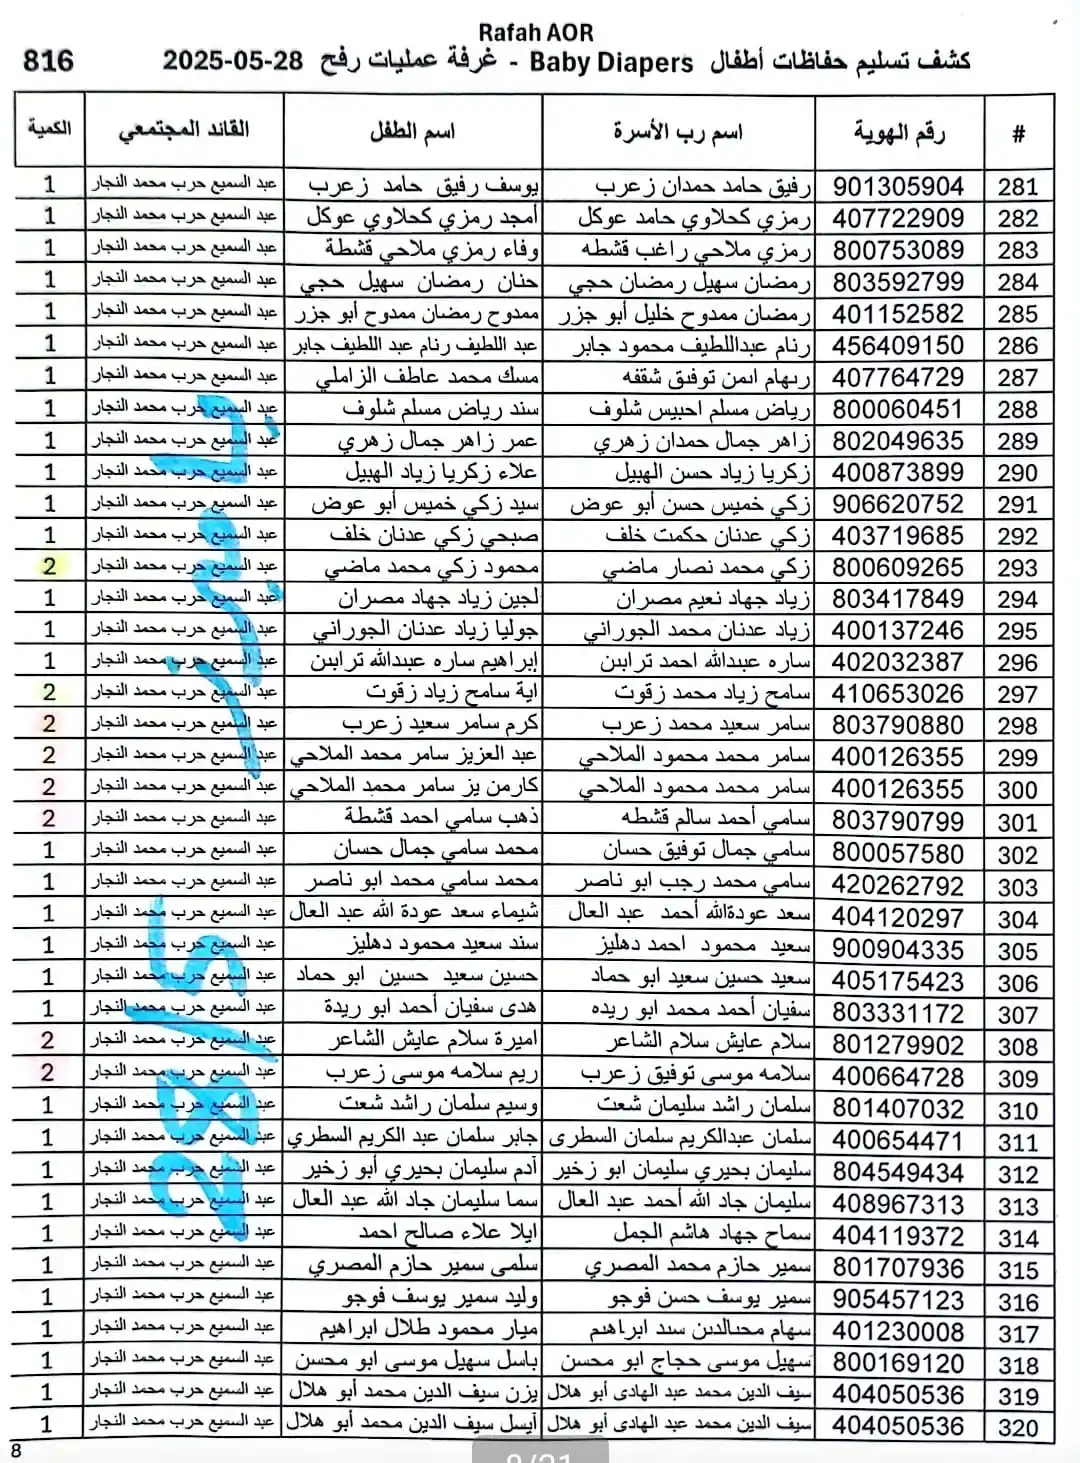 Rafah AOR
كشف تسليم حفاظات أطفال Baby Diapers - غرفة عمليات رفح 28-05-2025
816
# رقم الهوية اسم رب الأسرة اسم الطفل القائد المجتمعي الكمية
281 901305904 رفيق حامد حمدان زعرب يوسف رفيق حامد زعرب عبد السميع حرب محمد النجار 1
282 407722909 رمزي كحلاوي حامد عوكل أمجد رمزي كحلاوي عوكل عبد السميع حرب محمد النجار 1
283 800753089 رمزي ملاحي راغب قشطه وفاء رمزي ملاحي قشطة عبد السميع حرب محمد النجار 1
284 803592799 رمضان سهيل رمضان حجي حنان رمضان سهيل حجي عبد السميع حرب محمد النجار 1
285 401152582 رمضان ممدوح خليل أبو جزر ممدوح رمضان ممدوح أبو جزر عبد السميع حرب محمد النجار 1
286 456409150 رنام عبداللطيف محمود جابر عبد اللطيف رنام عبد اللطيف جابر عبد السميع حرب محمد النجار 1
287 407764729 ريهام ايمن توفيق شقفه مسك محمد عاطف الزاملي عبد السميع حرب محمد النجار 1
288 800060451 رياض مسلم احبيس شلوف سند رياض مسلم شلوف عبد السميع حرب محمد النجار 1
289 802049635 زاهر جمال حمدان زهري عمر زاهر جمال زهري عبد السميع حرب محمد النجار 1
290 400873899 زكريا زياد حسن الهبيل علاء زكريا زياد الهبيل عبد السميع حرب محمد النجار 1
291 906620752 زكي خميس حسن أبو عوض سيد زكي خميس أبو عوض عبد السميع حرب محمد النجار 1
292 403719685 زكي عدنان حكمت خلف صبحي زكي عدنان خلف عبد السميع حرب محمد النجار 1
293 800609265 زكي محمد نصار ماضي محمود زكي محمد ماضي عبد السميع حرب محمد النجار 2
294 803417849 زياد جهاد نعيم مصران لجين زياد جهاد مصران عبد السميع حرب محمد النجار 1
295 400137246 زياد عدنان محمد الجوراني جوليا زياد عدنان الجوراني عبد السميع حرب محمد النجار 1
296 402032387 ساره عبدالله احمد ترابين إبراهيم ساره عبدالله ترابين عبد السميع حرب محمد النجار 1
297 410653026 سامح زياد محمد زقوت اية سامح زياد زقوت عبد السميع حرب محمد النجار 2
298 803790880 سامر سعيد محمد زعرب كرم سامر سعيد زعرب عبد السميع حرب محمد النجار 2
299 400126355 سامر محمد محمود الملاحي عبد العزيز سامر محمد الملاحي عبد السميع حرب محمد النجار 2
300 400126355 سامر محمد محمود الملاحي كارمن يز سامر محمد الملاحي عبد السميع حرب محمد النجار 2
301 803790799 سامي أحمد سالم قشطه ذهب سامي احمد قشطة عبد السميع حرب محمد النجار 2
302 800057580 سامي جمال توفيق حسان محمد سامي جمال حسان عبد السميع حرب محمد النجار 1
303 420262792 سامي محمد رجب ابو ناصر محمد سامي محمد ابو ناصر عبد السميع حرب محمد النجار 1
304 404120297 سعد عودةالله أحمد عبد العال شيماء سعد عودة الله عبد العال عبد السميع حرب محمد النجار 1
305 900904335 سعيد محمود احمد دهليز سند سعيد محمود دهليز عبد السميع حرب محمد النجار 1
306 405175423 سعيد حسين سعيد ابو حماد حسين سعيد حسين ابو حماد عبد السميع حرب محمد النجار 1
307 803331172 سفيان أحمد محمد ابو ريده هدى سفيان أحمد ابو ريدة عبد السميع حرب محمد النجار 1
308 801279902 سلام عايش سلام الشاعر اميرة سلام عايش الشاعر عبد السميع حرب محمد النجار 2
309 400664728 سلامه موسى توفيق زعرب ريم سلامه موسى زعرب عبد السميع حرب محمد النجار 2
310 801407032 سلمان راشد سليمان شعت وسيم سلمان راشد شعت عبد السميع حرب محمد النجار 1
311 400654471 سلمان عبدالكريم سلمان السطرى جابر سلمان عبد الكريم السطري عبد السميع حرب محمد النجار 1
312 804549434 سليمان بحيري سليمان ابو زخير آدم سليمان بحيري أبو زخير عبد السميع حرب محمد النجار 1
313 408967313 سليمان جاد الله أحمد عبد العال سما سليمان جاد الله عبد العال عبد السميع حرب محمد النجار 1
314 404119372 سماح جهاد هاشم الجمل ايلا علاء صالح احمد عبد السميع حرب محمد النجار 1
315 801707936 سمير حازم محمد المصري سلمى سمير حازم المصري عبد السميع حرب محمد النجار 1
316 905457123 سمير يوسف حسن فوجو وليد سمير يوسف فوجو عبد السميع حرب محمد النجار 1
317 401230008 سهام محيالدين سيد ابراهيم ميار محمود طلال ابراهيم عبد السميع حرب محمد النجار 1
318 800169120 سهيل موسى حجاج ابو محسن باسل سهيل موسى ابو محسن عبد السميع حرب محمد النجار 1
319 404050536 سيف الدين محمد عبد الهادى أبو هلال يزن سيف الدين محمد أبو هلال عبد السميع حرب محمد النجار 1
320 404050536 سيف الدين محمد عبد الهادى أبو هلال آيسل سيف الدين محمد أبو هلال عبد السميع حرب محمد النجار 1
28/5
8
8/21